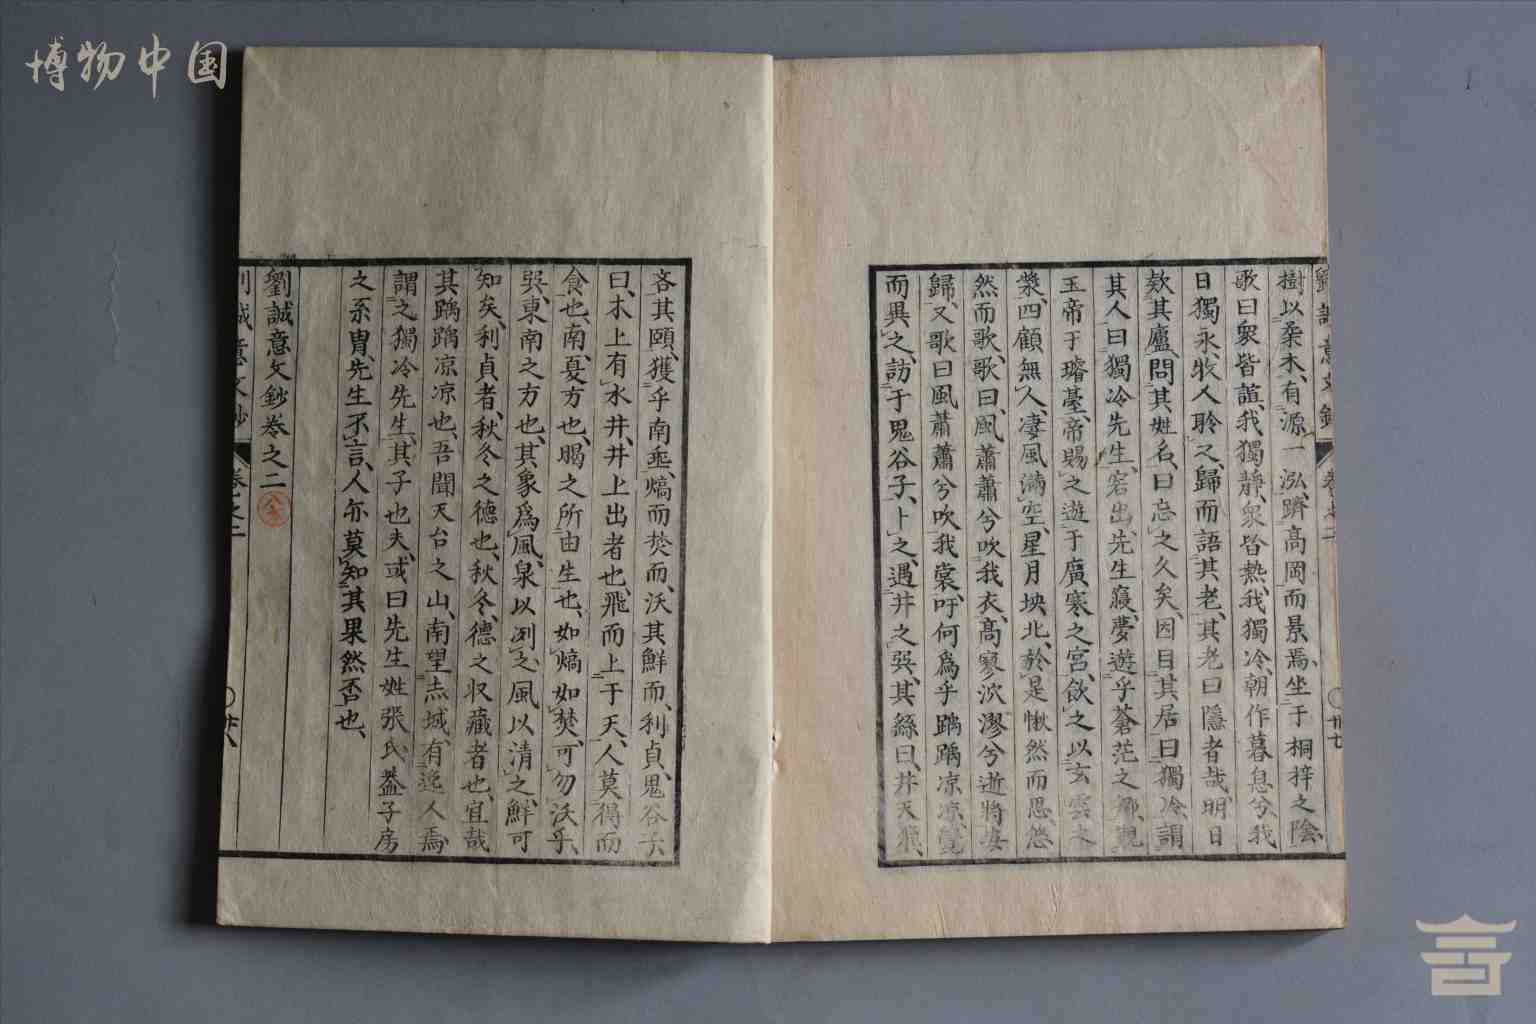 博物中国
樹以柔木、有源一泓、躋高岡而景焉、坐于桐梓之陰
歌曰衆皆諠、我獨靜、衆皆熱、我獨冷、朝作暮息兮、我
日獨永、牧人聆之、歸而語其老、其老曰隱者哉、明日
欵其廬、問其姓名、曰忘之久矣、因目其居曰獨冷、謂
其人曰獨冷先生、客出、先生寢、夢遊乎蒼茫之鄉、覲
玉帝于璿臺、帝賜之遊于廣寒之宮、飲之以玄雲之
漿、四顧無人、凄風滿空、星月坱北、於是愀然而思、悠
然而歌、歌曰、風蕭蕭兮吹我衣、高寥泬漻兮逝將安
歸、又歌曰風蕭蕭兮吹我裳、吁何爲乎踽踽凉凉、覺
而異之、訪于鬼谷子、卜之、遇井之巽、其繇曰、井天飛
吝其頤、獲乎南垂、熇而焚而、沃其鮮而、利貞、鬼谷子
曰、木上有水井、井上出者也、飛而上于天、人莫得而
食也、南夏方也、暍之所由生也、如熇如焚、可勿沃乎、
巽、東南之方也、其象爲風、泉以冽之、風以清之、鮮可
知矣、利貞者、秋冬之德也、秋冬、德之収藏者也、宜哉
其踽踽凉凉也、吾聞天台之山、南望赤城、有逸人焉、
謂之獨冷先生、其子也夫、或曰先生姓張氏、葢子房
之系胄、先生不言、人亦莫知其果然否也、
劉誠意文鈔卷之二
劉誠意文鈔 卷之二 廿七